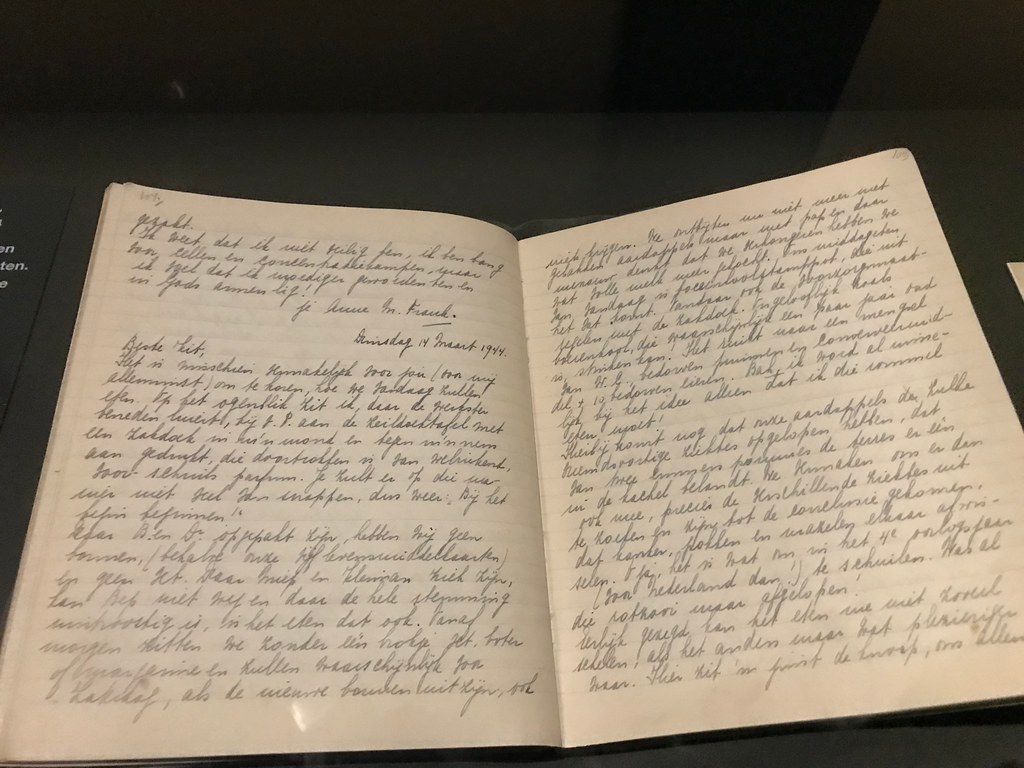 en
ten.
e
gezakt.
Ik weet dat ik niet veilig ben, ik ben bang
voor cellen en concentratiekampen, maar
ik voel dat ik moediger geworden ben en
in Gods armen lig!
je Anne M. Frank.
Dinsdag 14 Maart 1944.
Beste Kit,
Het is misschien vermakelijk voor jou (voor mij
allerminst) om te horen, hoe we vandaag zullen
eten. Op het ogenblik zit ik, daar de werkster
beneden is, bij v. P. aan de zeildoektafel met
een zakdoek in m'n mond en tegen m'n neus
aan gedrukt, die doortrokken is van welriekend,
voor-schuils parfum. Je zult er op die ma-
nier niet veel van snappen, dus weer: "Bij het
begin beginnen!"
Daar B. en D. opgepakt zijn, hebben wij geen
bonnen, (behalve onze vijf levensmiddelkaarten)
en geen vet. Daar Miep en Kleiman ziek zijn,
kan Bep niet weg en daar de hele stemming
is, is het eten dat ook. Vanaf
morgen zitten we zonder één stukje vet, boter
of margarine en zullen waarschijnlijk voor
Zaterdag, als de nieuwe bonnen uit zijn, ook
niets krijgen. We ontbijten nu niet meer met
gebakken aardappels maar met pap en daar
mevrouw denkt dat we verhongeren hebben we
wat volle melk meer gekocht. Ons middageten
van vandaag is boerenkoolstamppot, die uit
het vat komt. Vandaar ook de voorzorgmaat-
regelen met de zakdoek. Ongelooflijk zoals
boerenkool, die waarschijnlijk een paar jaar oud
is, stinken kan. Het ruikt naar een mengsel
van W.C. bedorven pruimen en conserveermid-
del + 10 bedorven eieren. Bah, ik word al misse-
lijk bij het idee alleen dat ik die rommel
eten moet!
Hierbij komt nog dat onze aardappels der, zulke
eigenaardige ziektes opgelopen hebben, dat
van twee emmers pommes de terres er één
in de kachel belandt. We vermaken ons er dan
ook mee, precies de verschillende ziektes uit
te zoeken en zijn tot de conclusie gekomen,
dat kanker, pokken en mazelen elkaar afwis-
selen. O ja, het is wat om in het 4e oorlogsjaar
(voor Nederland dan!) te schuilen. Was al
die rotzooi maar afgelopen!
Eerlijk gezegd kan het eten me niet zoveel
schelen, als het anders maar wat plezieriger
waar. Hier zit 'm juist de knoop, ons allen